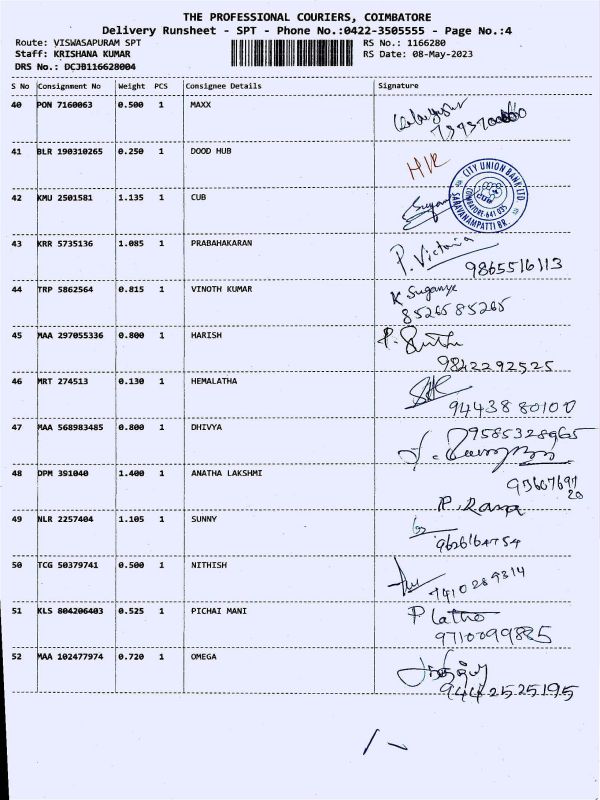 THE PROFESSIONAL COURIERS, COIMBATORE
Delivery Runsheet - SPT - Phone No.:0422-3505555 - Page No.:4
Route: VISWASAPURAM SPT RS No.: 1166280
Staff: KRISHANA KUMAR RS Date: 08-May-2023
DRS No.: DCJB116628004
S No Consignment No Weight PCS Consignee Details Signature
40 PON 7160063 0.500 1 MAXX
41 BLR 190310265 0.250 1 DOOD HUB
CITY UNION BANK LTD
COIMBATORE-641 035
SARAVANAMPATTI BR.
42 KMU 2501581 1.135 1 CUB
43 KRR 5735136 1.085 1 PRABAHAKARAN P. Victoria
9865516113
44 TRP 5862564 0.815 1 VINOTH KUMAR K Suganya
8526585265
45 MAA 297055336 0.800 1 HARISH
9842292525
46 MRT 274513 0.130 1 HEMALATHA
9443880100
47 MAA 568983485 0.800 1 DHIVYA 9585328965
48 DPM 391040 1.400 1 ANATHA LAKSHMI
P. Rama
49 NLR 2257404 1.105 1 SUNNY
50 TCG 50379741 0.500 1 NITHISH
7410289314
51 KLS 804206403 0.525 1 PICHAI MANI P Latha
52 MAA 102477974 0.720 1 OMEGA
9442525195